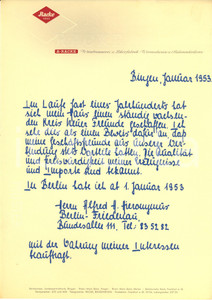 Racke
A. RACKE
Bingen, Januar 1953
Im Laufe fast eines Jahrhunderts hat
sich mein Haus einen ständig wachsen-
den Kreis neuer Freunde geschaffen. Ich
sehe dies als einen Beweis dafür an, daß
meine Geschäftsfreunde aus unserer Ver-
bindung stets Vorteile hatten. Die Qualität
und Preiswürdigkeit meiner Erzeugnisse
und Importe sind bekannt.
In Berlin habe ich ab 1. Januar 1953
Herrn Alfred F. Hieronymus
Berlin-Friedenau,
Bundesallee 111, Tel: 83 52 82
mit der Wahrung meiner Interessen
beauftragt.